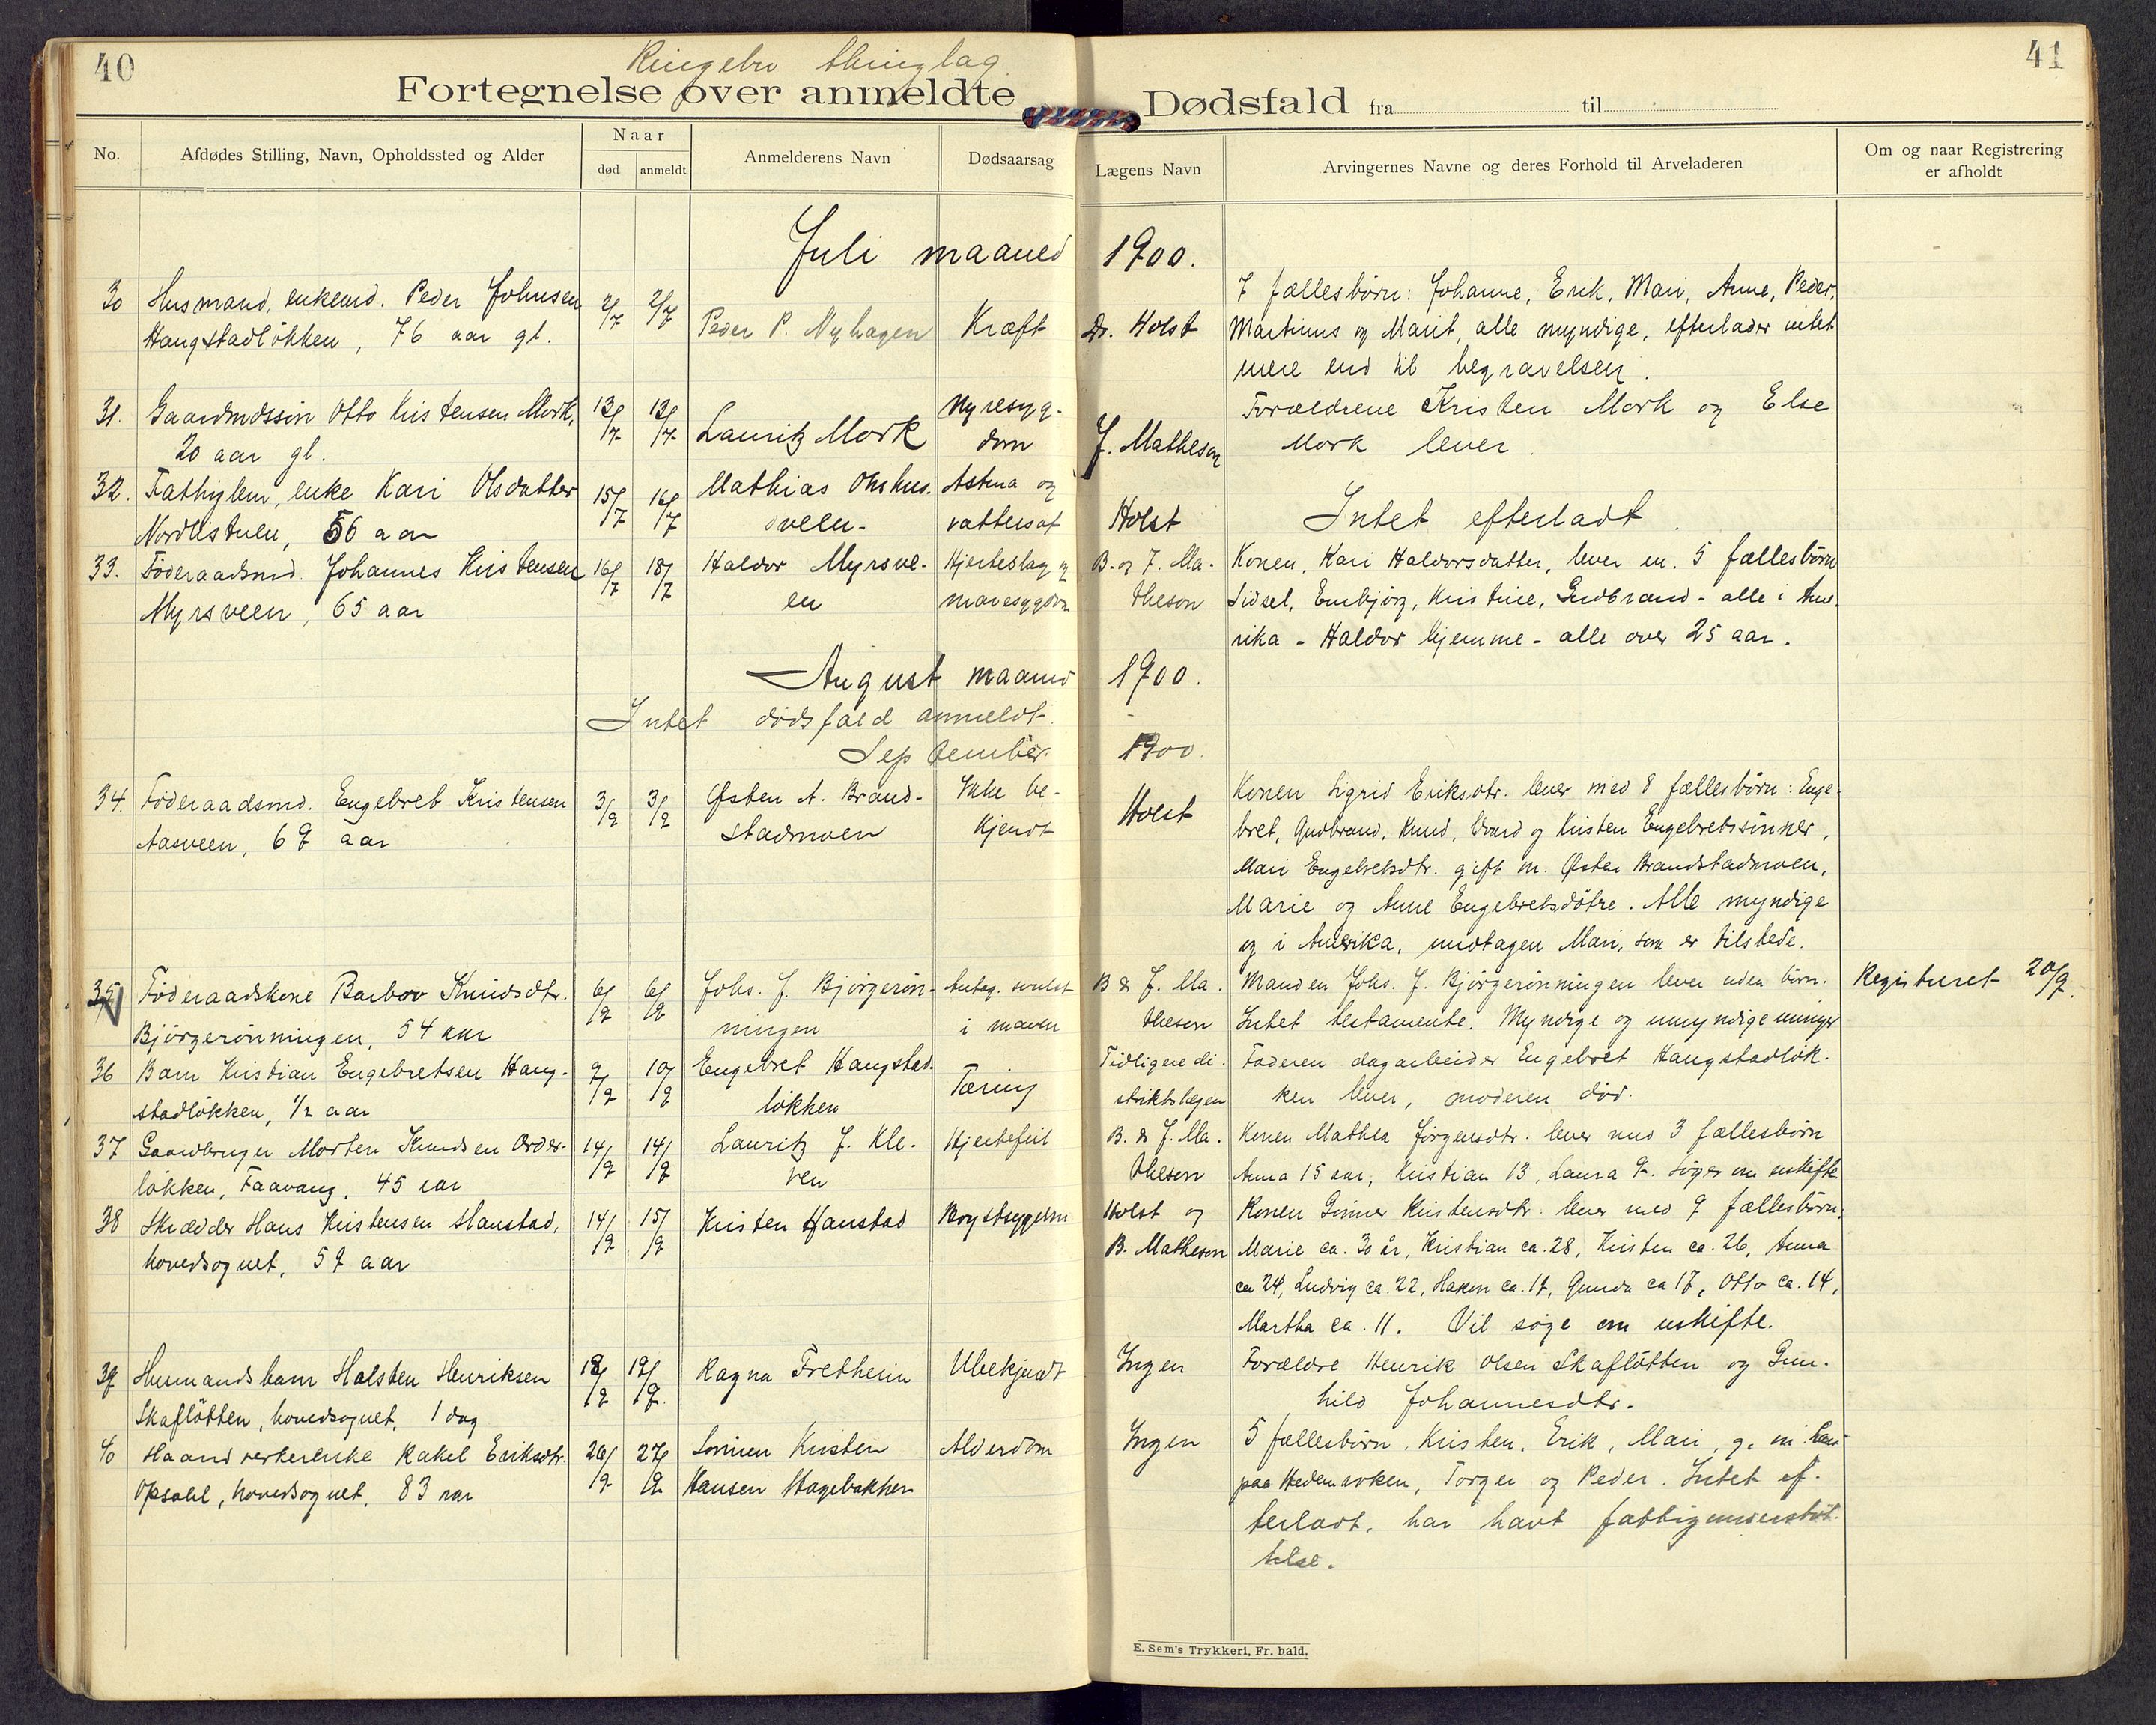 40
Ringebu thinglag
41
Fortegnelse over anmeldte Dødsfald fra til
No.
Afdødes Stilling, Navn, Opholdssted og Alder
Naar
død
anmeldt
Anmelderens Navn
Dødsaarsag
Lægens Navn
Arvingernes Navne og deres Forhold til Arveladeren
Om og naar Registrering
er afholdt
Juli maaned 1900.
30 Husmand, enkemd. Peder Johnsen
Haugstadløkken, 76 aar gl.
2/7 2/7
Peder P. Nyhagen
Kræft
Dr. Holst
7 fællesbørn: Johanne, Erik, Mari, Anne, Peder,
Martinus og Marit, alle myndige, efterlader intet
mere end til begravelsen.
31. Gaardmdssøn Otto Kristensen Mork,
20 aar gl.
13/7 13/7
Lauritz Mork
Nyresyg-
dom
J. Matheson
Forældrene Kristen Mork og Else
Mork lever.
32. Fattiglem, enke Kari Olsdatter
Nordlistulen, 56 aar
15/7 16/7
Mathias
sveen-
Astma og
vattersot
Holst
Intet efterladt.
33. Føderaadsmd. Johannes Kristensen
Myrsveen, 65 aar
16/7 18/7
Haldor Myrsve-
en
Hjerteslag og
mavesygdom
B. og J. Ma-
theson
Konen, Kari Haldorsdatter, lever m. 5 fællesbørn
Sidsel, Embjørg, Kristine, Gudbrand - alle i Ame-
rika - Haldor hjemme - alle over 25 aar.
August maaned 1900.
Intet dødsfald anmeldt.
September 1900.
34. Føderaadsmd. Engebret Kristensen
Aasveen, 69 aar
3/9 3/9
Østen A. Brand-
stadmoen
Ikke be-
kjendt
Holst
Konen Sigrid Eriksdtr. lever med 8 fællesbørn: Enge-
bret, Gudbrand, Knud, Ivard og Kristen Engebretssønner,
Mari Engebretsdtr. gift m. Østen Brandstadmoen,
Marie og Anne Engebretsdøtre. Alle myndige
og i Amerika, undtagen Mari, som er tilstede.
35 Føderaadskone Barbro Knudsdtr.
Bjørgerønningen, 54 aar
6/9 6/9
Johs. J. Bjørgerøn-
ningen
Antag. svulst
i maven
B & J. Ma-
theson
Manden Johs. J. Bjørgerønningen lever uden børn.
Intet testamente. Myndige og umyndige arvinger
Registreret 20/9.
36 Barn Kristian Engebretsen Haug-
stadløkken, 1/2 aar
9/9 10/9
Engebret Haugstad-
løkken
Tæring
Tidligere di-
striktslægen
Faderen dagarbeider Engebret Haugstadløk-
ken lever, moderen død.
37 Gaardbruger Morten Knudsen Order-
løkken, Faavang, 45 aar
14/9 14/9
Lauritz J. Kle-
ven
Hjertefeil
B. & J. Ma-
theson
Konen Mathea Jørgensdtr. lever med 3 fællesbørn
Anna 15 aar, Kristian 13, Laura 9. Søger om uskifte
38 Skrædder Hans Kristensen Hanstad,
hovedsognet, 59 aar
14/9 15/9
Kristen Hanstad
Brystsygdom
Holst og
B. Matheson
Konen Kristensdtr. lever med 9 fællesbørn:
Marie ca. 30 år, Kristian ca. 28, Kristen ca. 26, Anna
ca 24, Ludvig ca. 22, Haken ca. 19, Gunda ca 17, Otto ca. 14,
Martha ca. 11. Vil søge om uskifte.
39 Husmandsbarn Halsten Henriksen
Skafløtten, hovedsognet, 1 dag
18/9 19/9.
Ragna Fretheim
Ubekjendt
Ingen
Forældre Henrik Olsen Skafløtten og Gun-
hild Johannesdtr.
40 Haandverkerenke Rakel Eriksdtr.
Opsahl, hovedsognet, 83 aar
26/9 27/9
Sønnen Kristen
Hansen Hagebakken
Alderdom
Ingen
5 fællesbørn, Kristen, Erik, Mari, g. m.
paa Hedemarken, Torger og Peder. Intet ef-
terladt, har havt fattigunderstøt-
telse.
E. Sem's Trykkeri, Fr.hald.